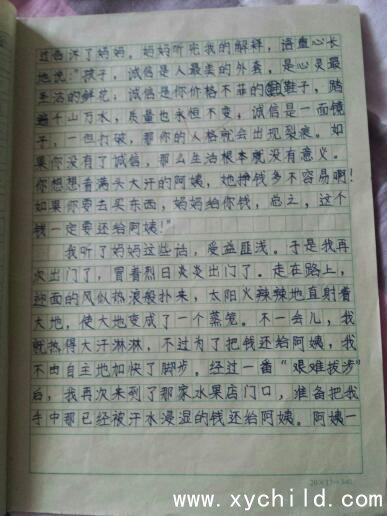 过告诉了妈妈。妈妈听完我的解释，语重心长
地说："孩子，诚信是人最美的外套，是心灵最
圣洁的鲜花；诚信是你价格不菲的鞋子，踏
遍千山万水，质量也永恒不变，诚信是一面镜
子，一但打破，那你的人格就会出现裂痕。如
果你没有了诚信，那么生活根本就没有意义。
你想想看满头大汗的阿姨，她挣钱多不容易啊!
如果你要去买东西，妈妈给你钱，总之，这个
钱一定要还给阿姨!"
我听了妈妈这些话，受益匪浅。于是我再
次出门了，冒着烈日炎炎出门了。走在路上，
迎面的风似热浪般扑来，太阳火辣辣地直射着
大地，使大地变成了一个蒸笼。不一会儿，我
就热得大汗淋淋，不过为了把钱还给阿姨，我
不由自主地加快了脚步。经过一番"艰难拔步"
后，我再次来到了那家水果店门口，准备把我
手中那已经被汗水浸湿的钱还给阿姨。阿姨一
www.xychild.com